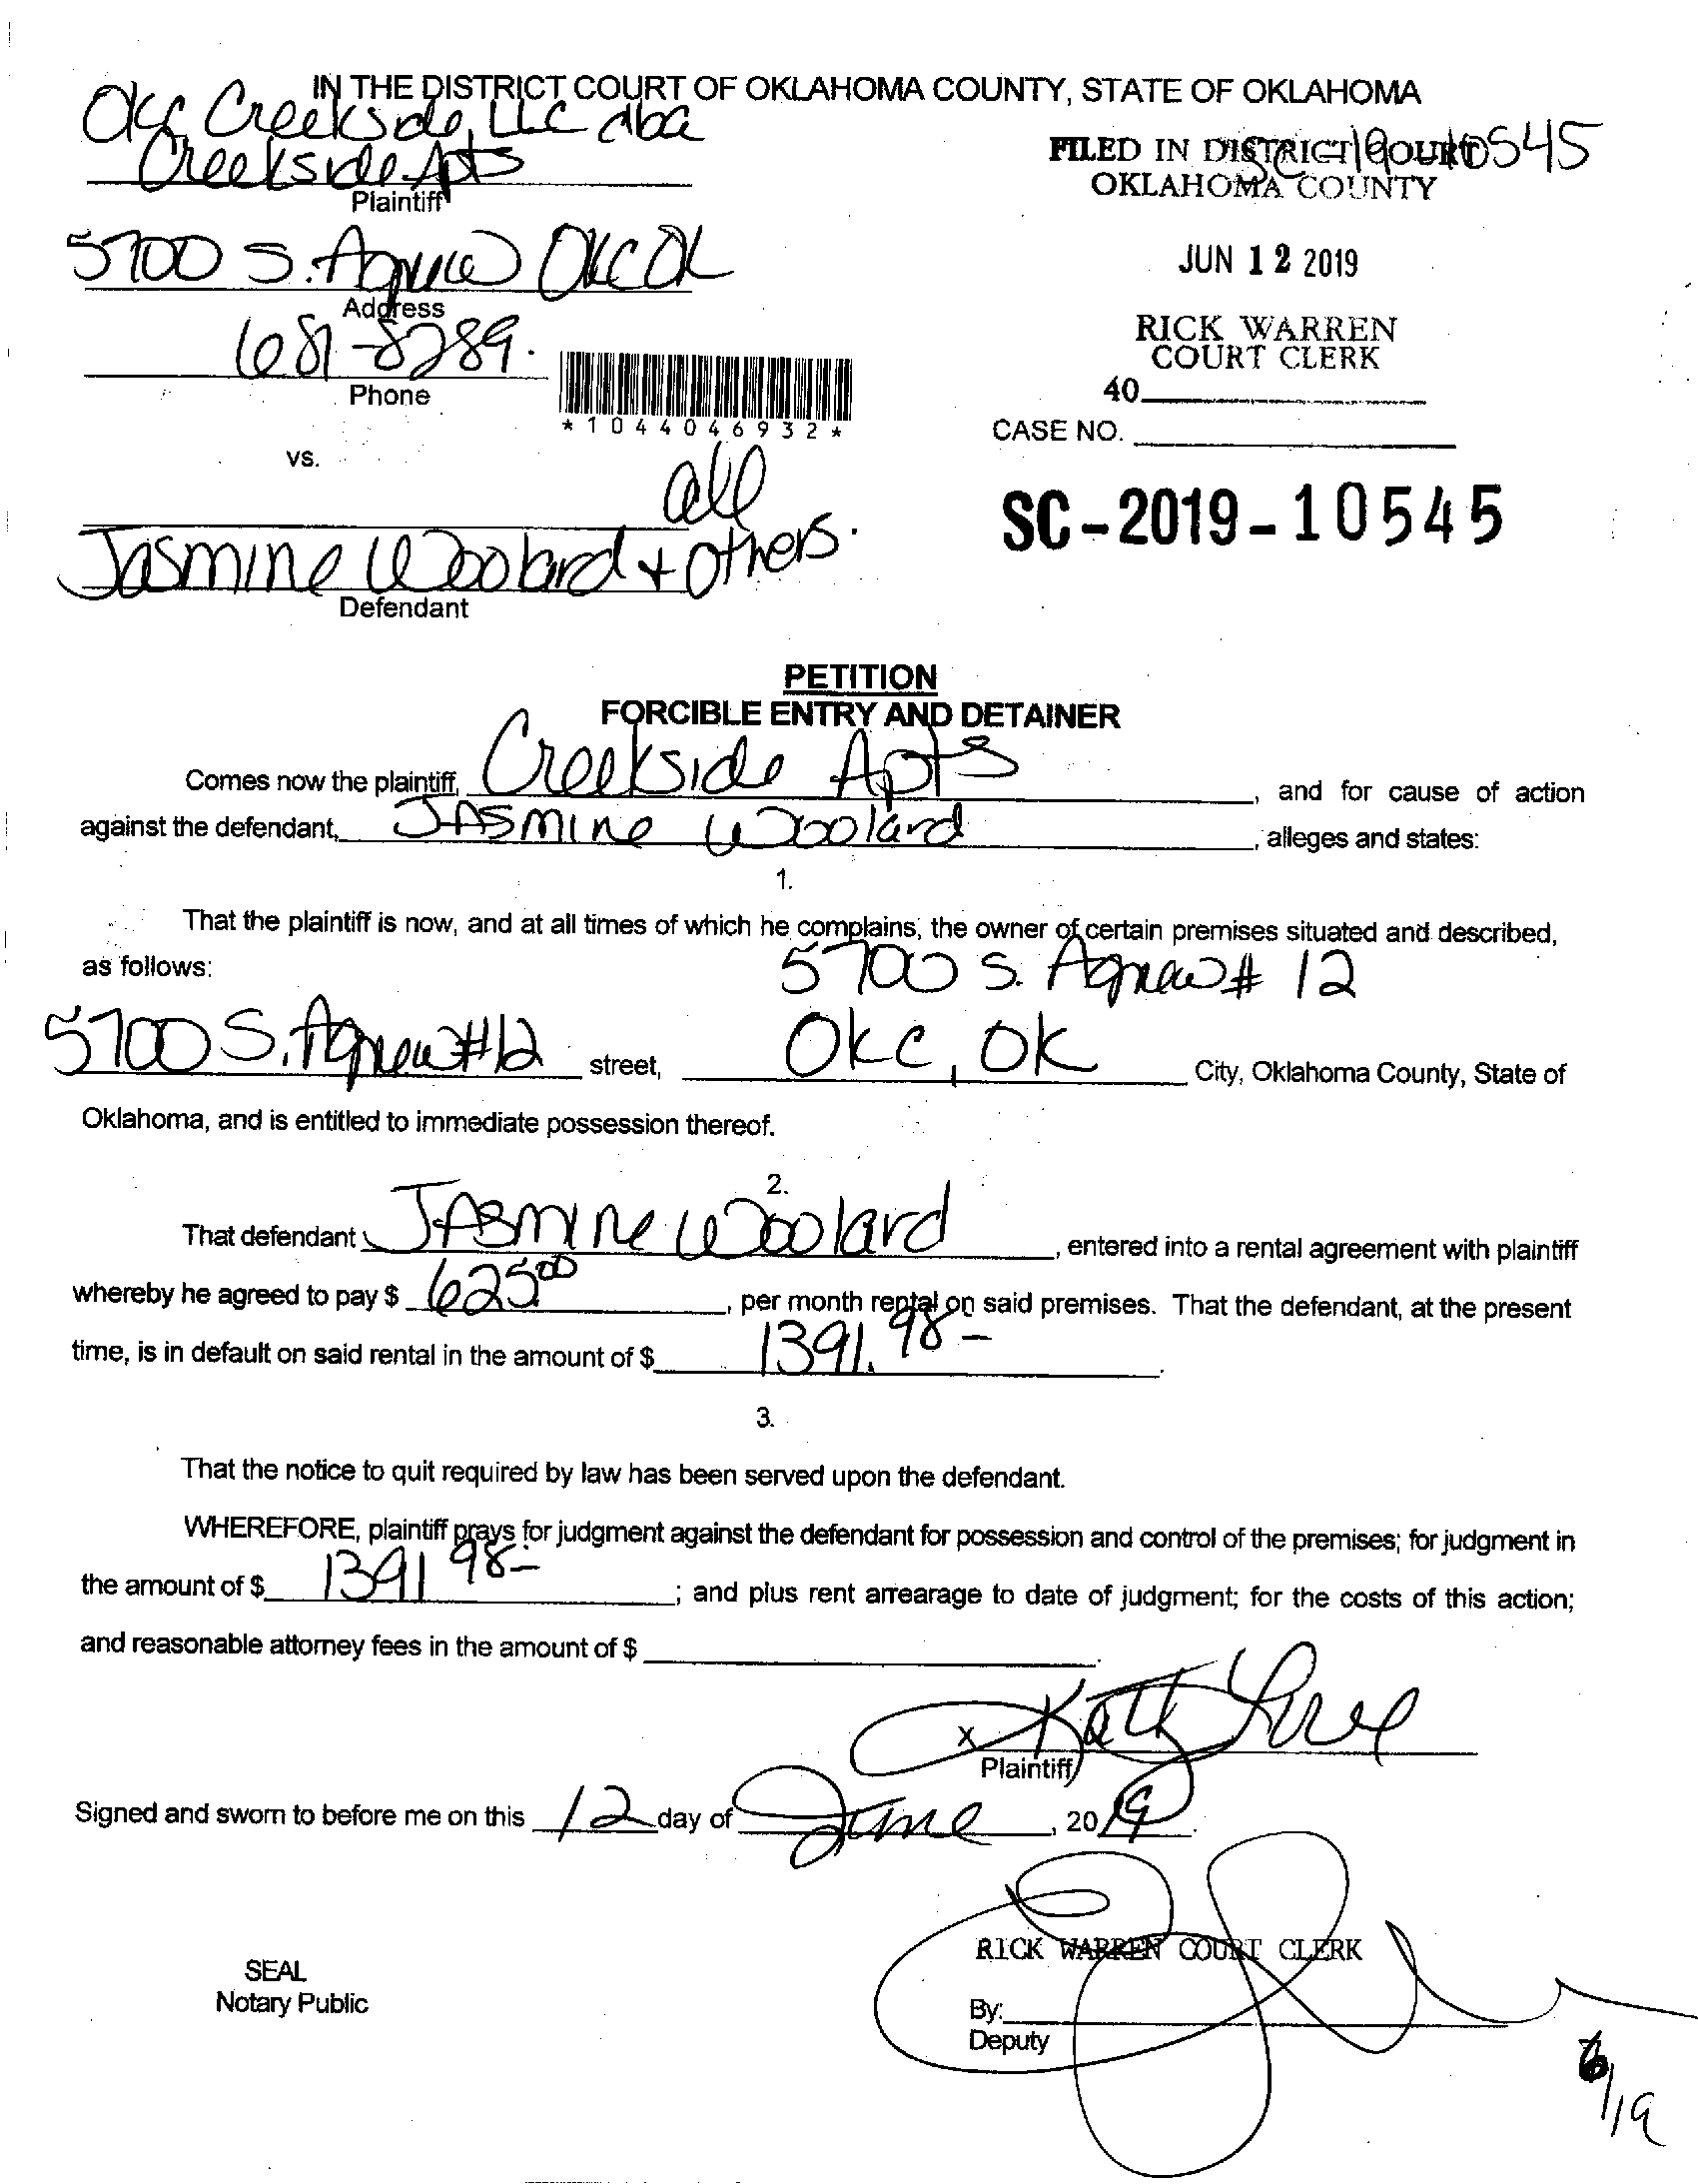 IN THE DISTRICT COURT OF OKLAHOMA COUNTY, STATE OF OKLAHOMA
OKC Creekside, LLC dba
Creekside Apts
Plaintiff
5700 S. Agnew OKC OK
Address
681-8289
Phone
*1044046932*
vs.
SC 19 10545
FILED IN DISTRICT COURT
OKLAHOMA COUNTY
JUN 12 2019
RICK WARREN
COURT CLERK
40
CASE NO.
SC-2019-10545
all
Jasmine Woolard + others.
Defendant
PETITION
FORCIBLE ENTRY AND DETAINER
Comes now the plaintiff, Creekside Apts, and for cause of action
against the defendant, Jasmine Woolard, alleges and states:
1.
That the plaintiff is now, and at all times of which he complains, the owner of certain premises situated and described,
as follows: 5700 S. Agnew # 12
5700 S. Agnew #12 street, OKC, OK City, Oklahoma County, State of
Oklahoma, and is entitled to immediate possession thereof.
2.
That defendant Jasmine Woolard, entered into a rental agreement with plaintiff
whereby he agreed to pay $ 625.00, per month rental on said premises. That the defendant, at the present
time, is in default on said rental in the amount of $ 1391.98-.
3.
That the notice to quit required by law has been served upon the defendant.
WHEREFORE, plaintiff prays for judgment against the defendant for possession and control of the premises; for judgment in
the amount of $ 1391 98-; and plus rent arrearage to date of judgment; for the costs of this action;
and reasonable attorney fees in the amount of $
X
Plaintiff
Signed and sworn to before me on this 12 day of June, 2019.
RICK WARREN COURT CLERK
SEAL
Notary Public
By:
Deputy
6/19